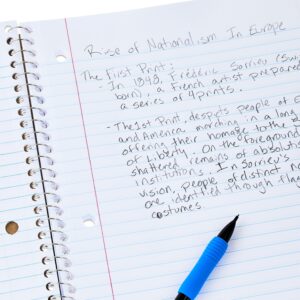 Rise of Nationalism In Europe
The First Print:
- In 1848, Frédéric Sorrieu (Sw
born), a French artist prepared
a series of 4 prints.
- The 1st Print, despicts people of E
and America marching in a long
offering their homage to the
of Liberty. On the foreground
shattered remains of absoluti
institutions. In Sorrieu's
vision, people of distinct
are identified through flag
costumes.